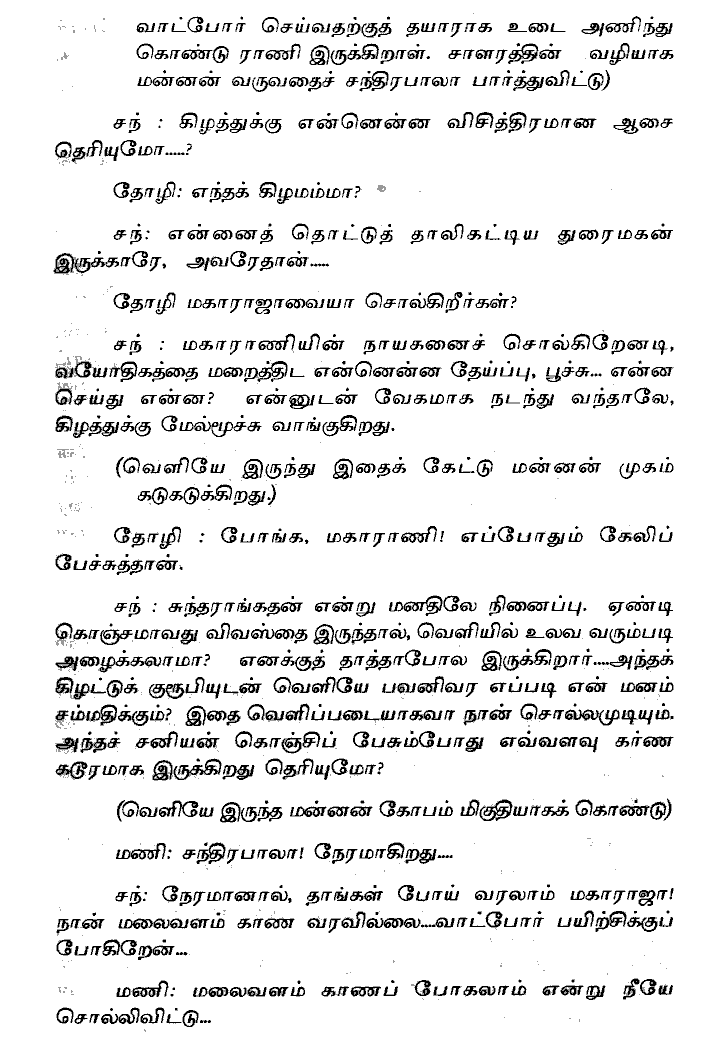 வாட்போர் செய்வதற்குத் தயாராக உடை அணிந்து
கொண்டு ராணி இருக்கிறாள். சாளரத்தின் வழியாக
மன்னன் வருவதைச் சந்திரபாலா பார்த்துவிட்டு)
சந் : கிழத்துக்கு என்னென்ன விசித்திரமான ஆசை
தெரியுமோ.....?
தோழி: எந்தக் கிழமம்மா?
சந்: என்னைத் தொட்டுத் தாலிகட்டிய துரைமகன்
இருக்காரே, அவரேதான்.....
தோழி மகாராஜாவையா சொல்கிறீர்கள்?
சந் : மகாராணியின் நாயகனைச் சொல்கிறேனடி,
வயோதிகத்தை மறைத்திட என்னென்ன தேய்ப்பு, பூச்சு... என்ன
செய்து என்ன? என்னுடன் வேகமாக நடந்து வந்தாலே,
கிழத்துக்கு மேல்மூச்சு வாங்குகிறது.
(வெளியே இருந்து இதைக் கேட்டு மன்னன் முகம்
கடுகடுக்கிறது.)
தோழி : போங்க, மகாராணி! எப்போதும் கேலிப்
பேச்சுத்தான்.
சந் : சுந்தராங்கதன் என்று மனதிலே நினைப்பு. ஏண்டி
கொஞ்சமாவது விவஸ்தை இருந்தால், வெளியில் உலவ வரும்படி
அழைக்கலாமா? எனக்குத் தாத்தாபோல இருக்கிறார்....அந்தக்
கிழட்டுக் குரூபியுடன் வெளியே பவனிவர எப்படி என் மனம்
சம்மதிக்கும்? இதை வெளிப்படையாகவா நான் சொல்லமுடியும்.
அந்தச் சனியன் கொஞ்சிப் பேசும்போது எவ்வளவு கர்ண
கடூரமாக இருக்கிறது தெரியுமோ?
(வெளியே இருந்த மன்னன் கோபம் மிகுதியாகக் கொண்டு)
மணி: சந்திரபாலா! நேரமாகிறது....
சந்: நேரமானால், தாங்கள் போய் வரலாம் மகாராஜா!
நான் மலைவளம் காண வரவில்லை....வாட்போர் பயிற்சிக்குப்
போகிறேன்...
மணி: மலைவளம் காணப் போகலாம் என்று நீயே
சொல்லிவிட்டு...